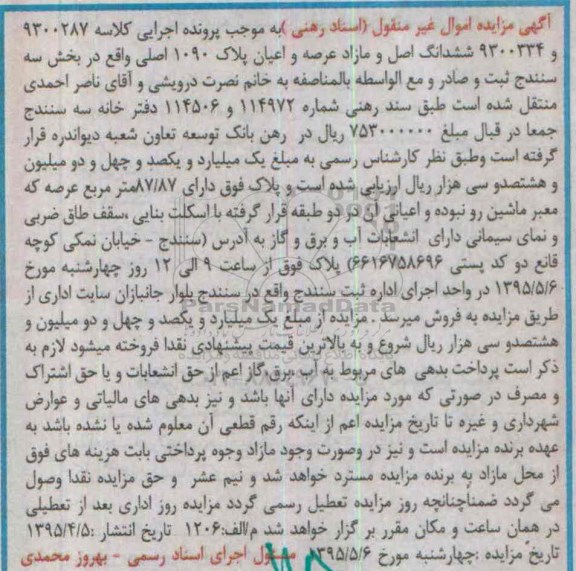 آگهی مزایده اموال غیر منقول (اسناد رهنی) به موجب پرونده اجرایی کلاسه ۹۳۰۰۲۸۷
و ۹۳۰۰۳۳۴ ششدانگ اصل و مازاد عرصه و اعیان پلاک ۱۰۹۰ اصلی واقع در بخش سه
سنندج ثبت و صادر و مع الواسطه بالمناصفه به خانم نصرت درویشی و آقای ناصر احمدی
منتقل شده است طبق سند رهنی شماره ۱۱۴۹۷۲ و ۱۱۴۵۰۶ دفتر خانه سه سنندج
جمعا در قبال مبلغ ۷۵۳۰۰۰۰۰۰ ریال در رهن بانک توسعه تعاون شعبه دیواندره قرار
گرفته است وطبق نظر کارشناس رسمی به مبلغ یک میلیارد و یکصد و چهل و دو میلیون
و هشتصدو سی هزار ریال ارزیابی شده است و پلاک فوق دارای ۸۷/۸۷متر مربع عرصه که
معبر ماشین رو نبوده و اعیانی آن در دو طبقه قرار گرفته با اسکلت بنایی ،سقف طاق ضربی
و نمای سیمانی دارای انشعابات آب و برق و گاز به آدرس (سنندج - خیابان نمکی کوچه
قانع دو کد پستی ۶۶۱۶۷۵۸۶۹۶) پلاک فوق از ساعت ۹ الی ۱۲ روز چهارشنبه مورخ
۱۳۹۵/۵/۶ در واحد اجرای اداره ثبت سنندج واقع در سنندج بلوار جانبازان سایت اداری از
طریق مزایده به فروش میرسد . مزایده از مبلغ یک میلیارد و یکصد و چهل و دو میلیون و
هشتصدو سی هزار ریال شروع و به بالاترین قیمت پیشنهادی نقدا فروخته میشود لازم به
ذکر است پرداخت بدهی های مربوط به آب ،برق،گاز اعم از حق انشعابات و یا حق اشتراک
و مصرف در صورتی که مورد مزایده دارای آنها باشد و نیز بدهی های مالیاتی و عوارض
شهرداری و غیره تا تاریخ مزایده اعم از اینکه رقم قطعی آن معلوم شده یا نشده باشد به
عهده برنده مزایده است و نیز در وصورت وجود مازاد وجوه پرداختی بابت هزینه های فوق
از محل مازاد به برنده مزایده مسترد خواهد شد و نیم عشر و حق مزایده نقدا وصول
می گردد ضمناچنانچه روز مزایده تعطیل رسمی گردد مزایده روز اداری بعد از تعطیلی
در همان ساعت و مکان مقرر بر گزار خواهد شد م/الف:۱۲۰۶ تاریخ انتشار :۱۳۹۵/۴/۵
تاریخ مزایده :چهارشنبه مورخ ۱۳۹۵/۵/۶ مسئول اجرای اسناد رسمی - بهروز محمدی